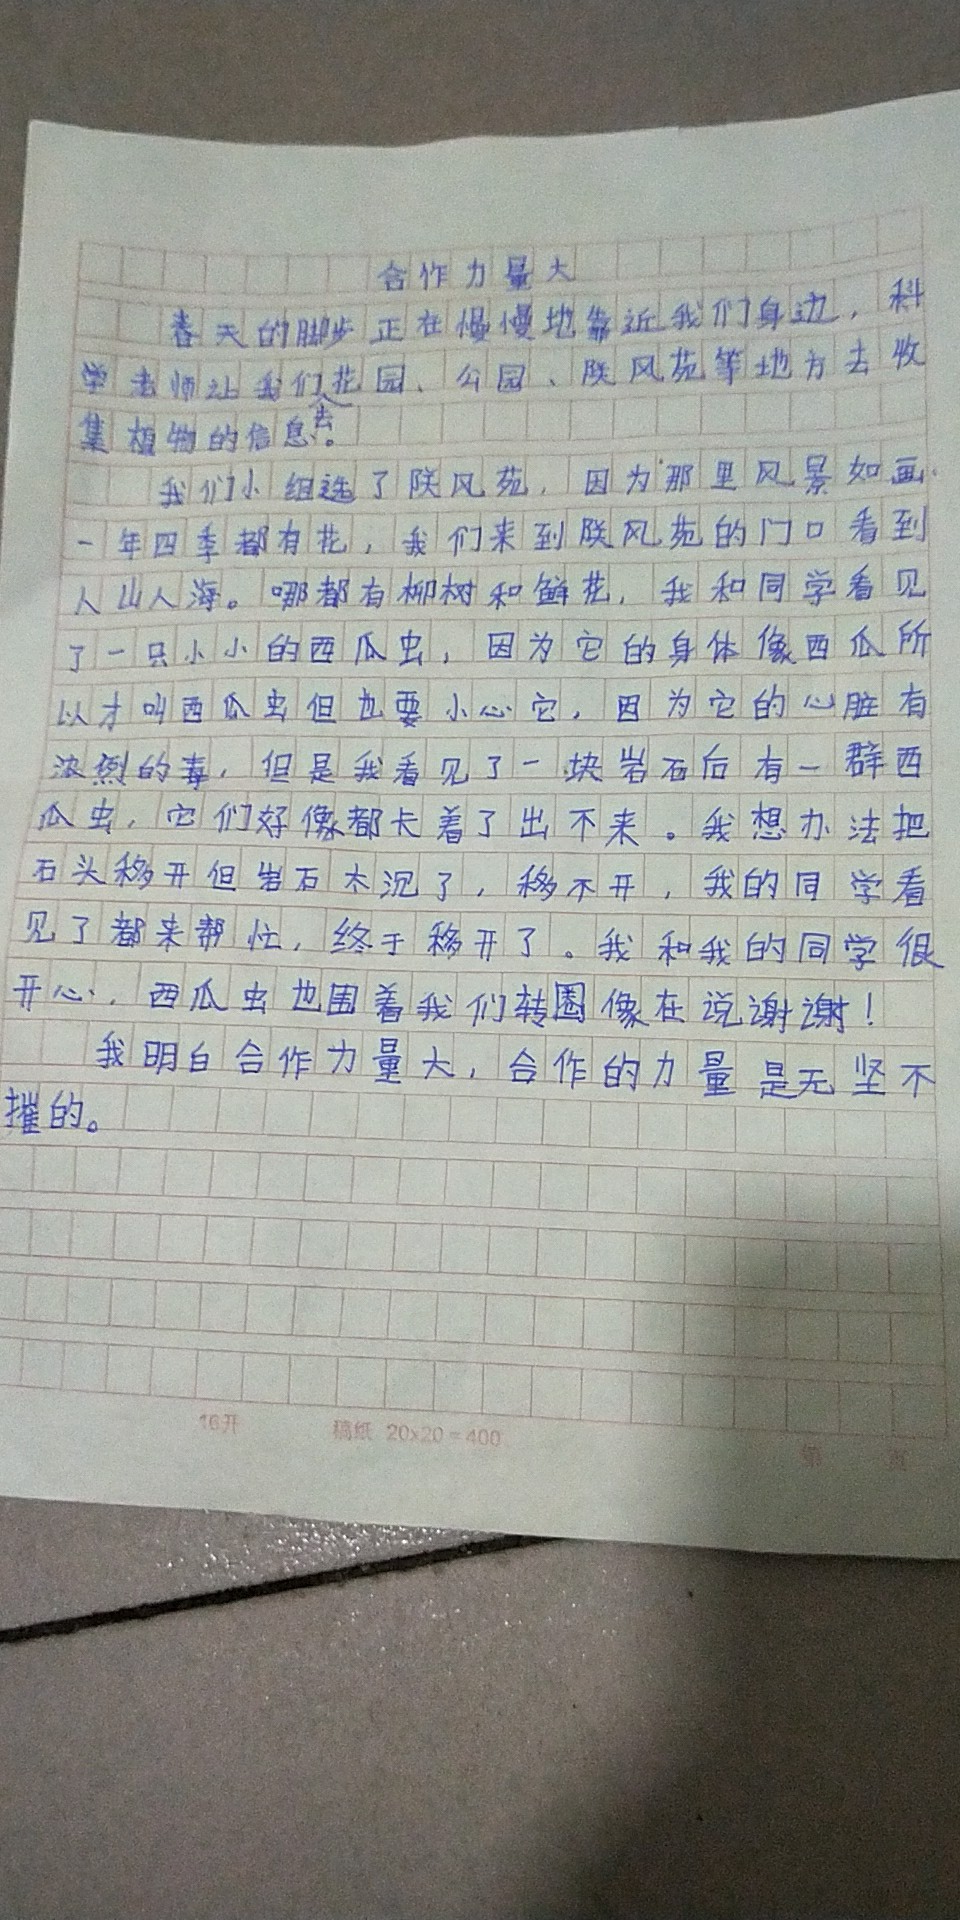 合作力量大
春天的脚步正在慢慢地靠近我们身边，科
学老师让我们去花园、公园、朕风苑等地方去收
集植物的信息。
我们小组选了朕风苑，因为那里风景如画.
一年四季都有花，我们来到朕风苑的门口看到
人山人海。哪都有柳树和鲜花，我和同学看见
了一只小小的西瓜虫，因为它的身体像西瓜所
以才叫西瓜虫但也要小心它，因为它的心脏有
浓烈的毒，但是我看见了一块岩石后有一群西
瓜虫，它们好像都卡着了出不来。我想办法把
石头移开但岩石太沉了，移不开，我的同学看
见了都来帮忙，终于移开了。我和我的同学很
开心，西瓜虫也围着我们转圈像在说谢谢！
我明白合作力量大，合作的力量是无坚不
摧的。
16开 稿纸 20x20=400 第 页